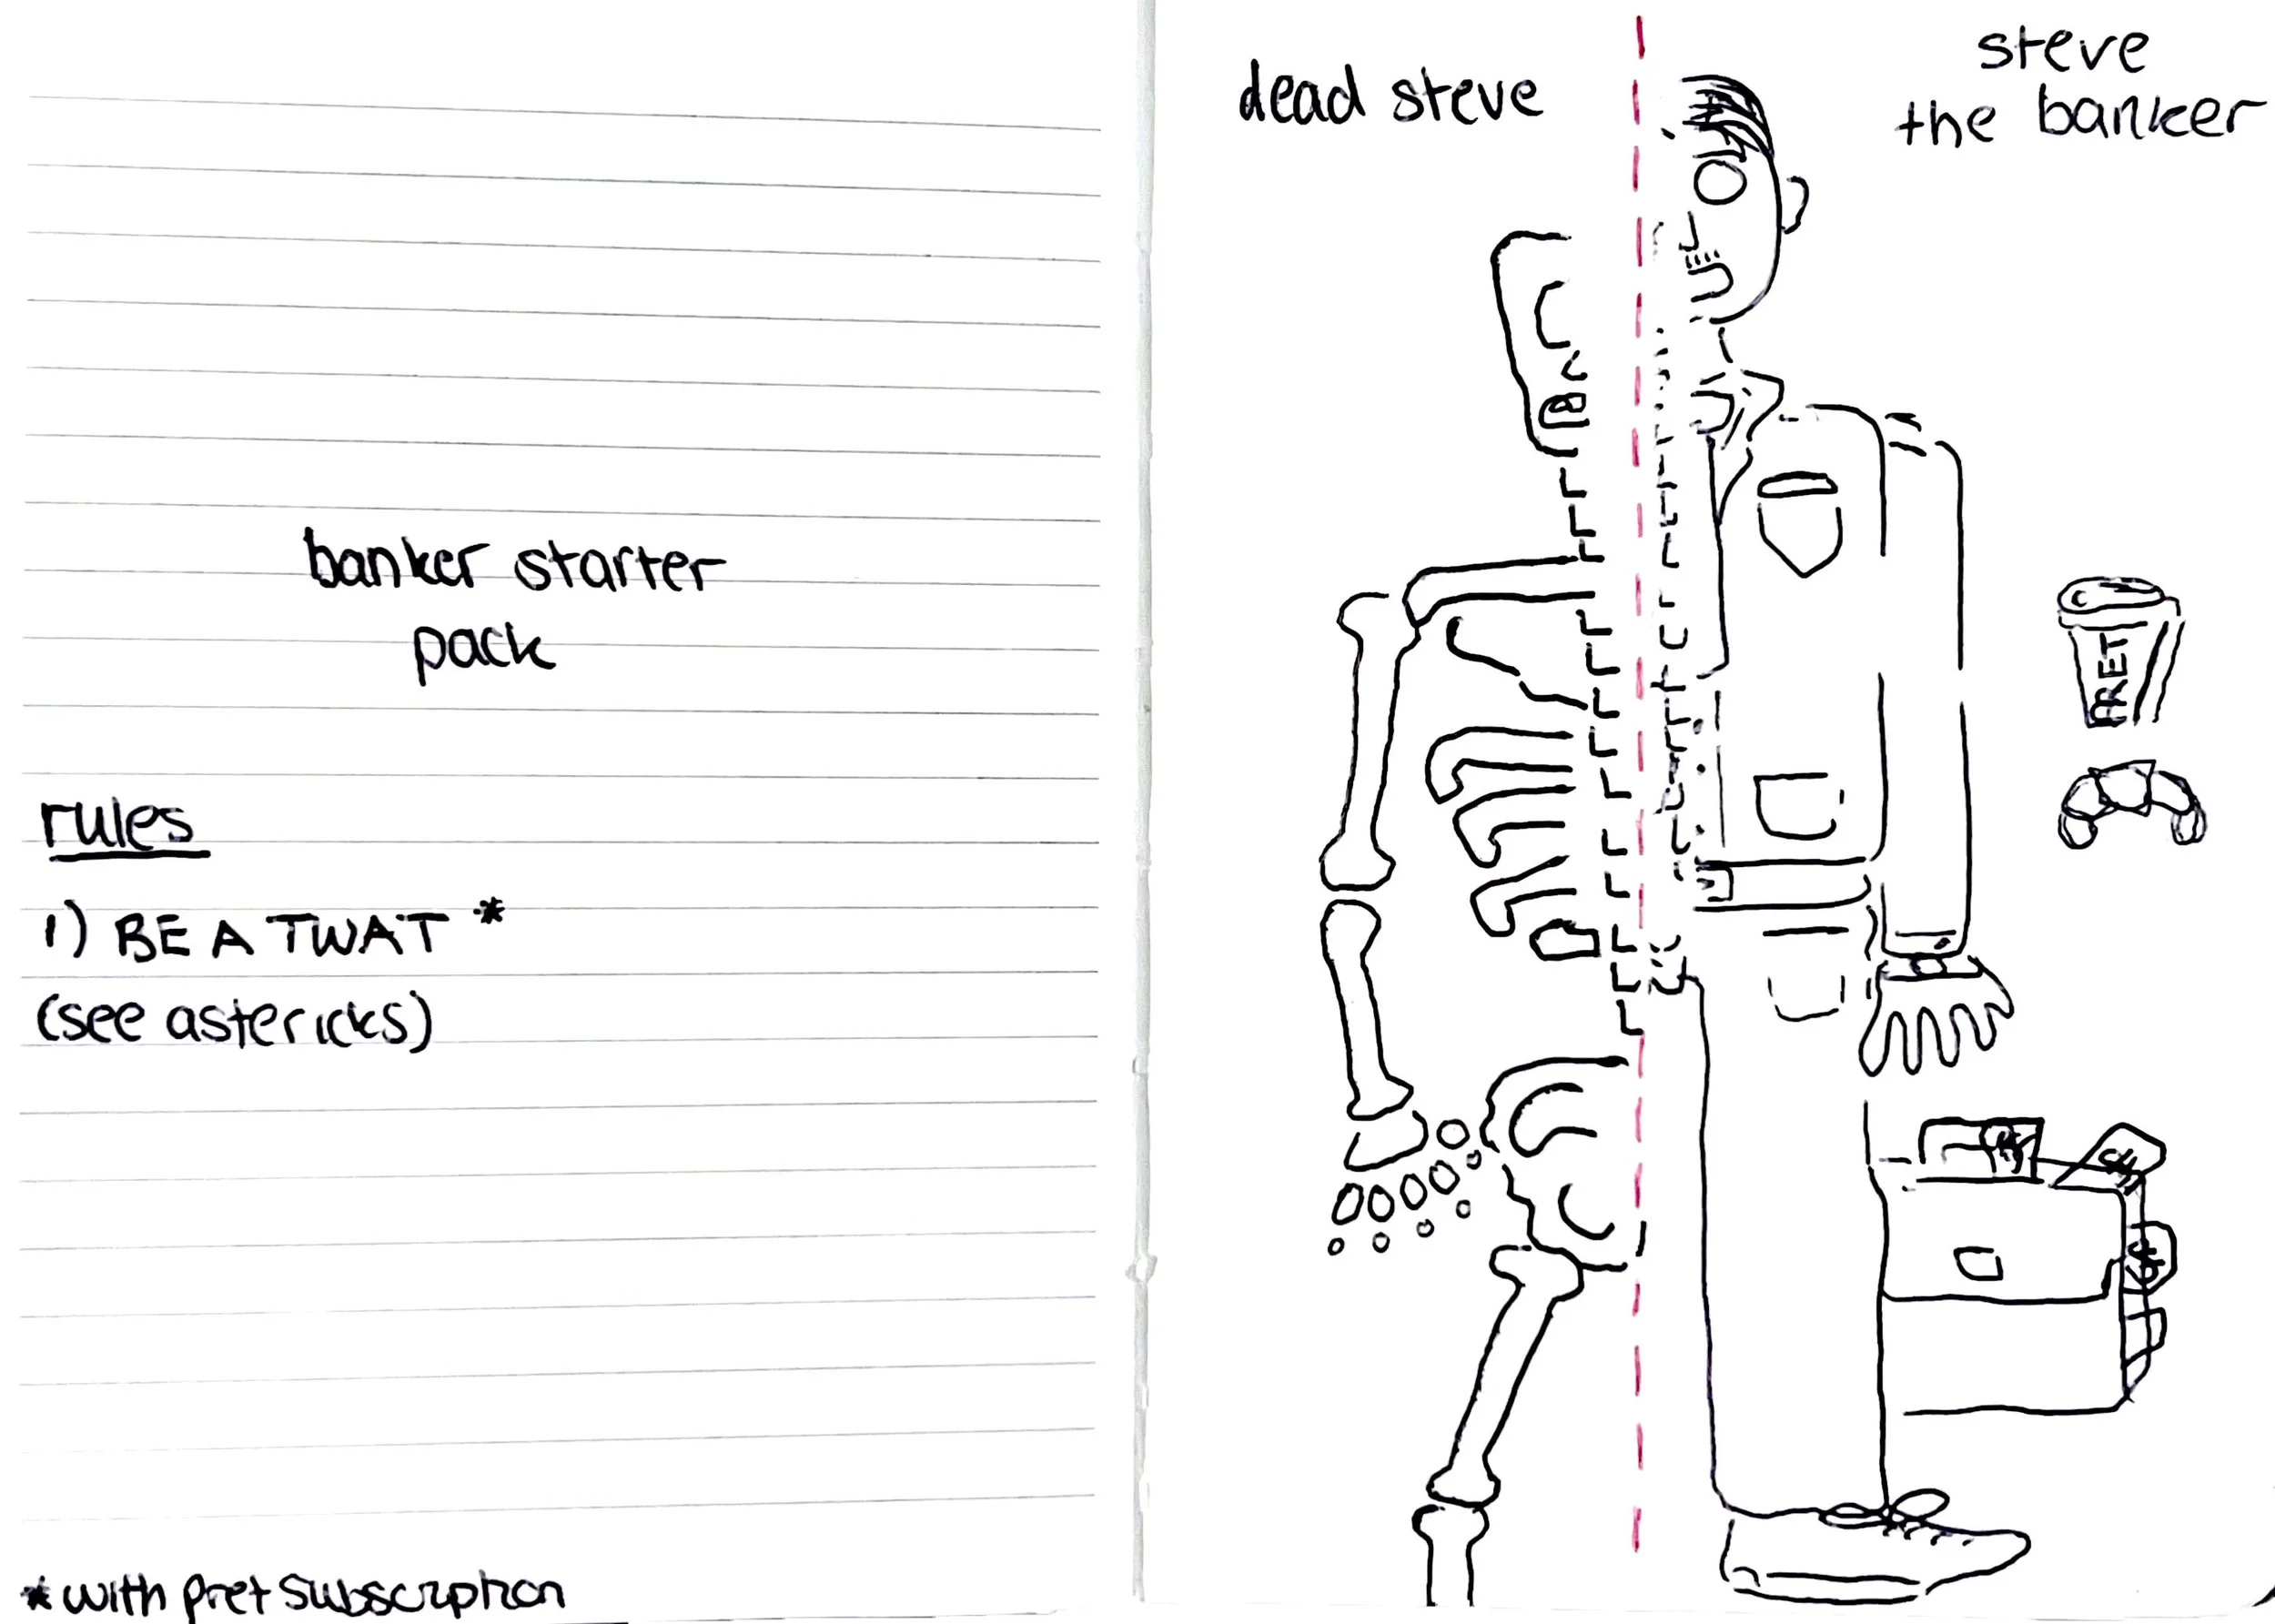 banker starter
pack
rules
1) BE A TWAT *
(see astericks)
* with pret subscription
dead steve
steve
the banker
PRET